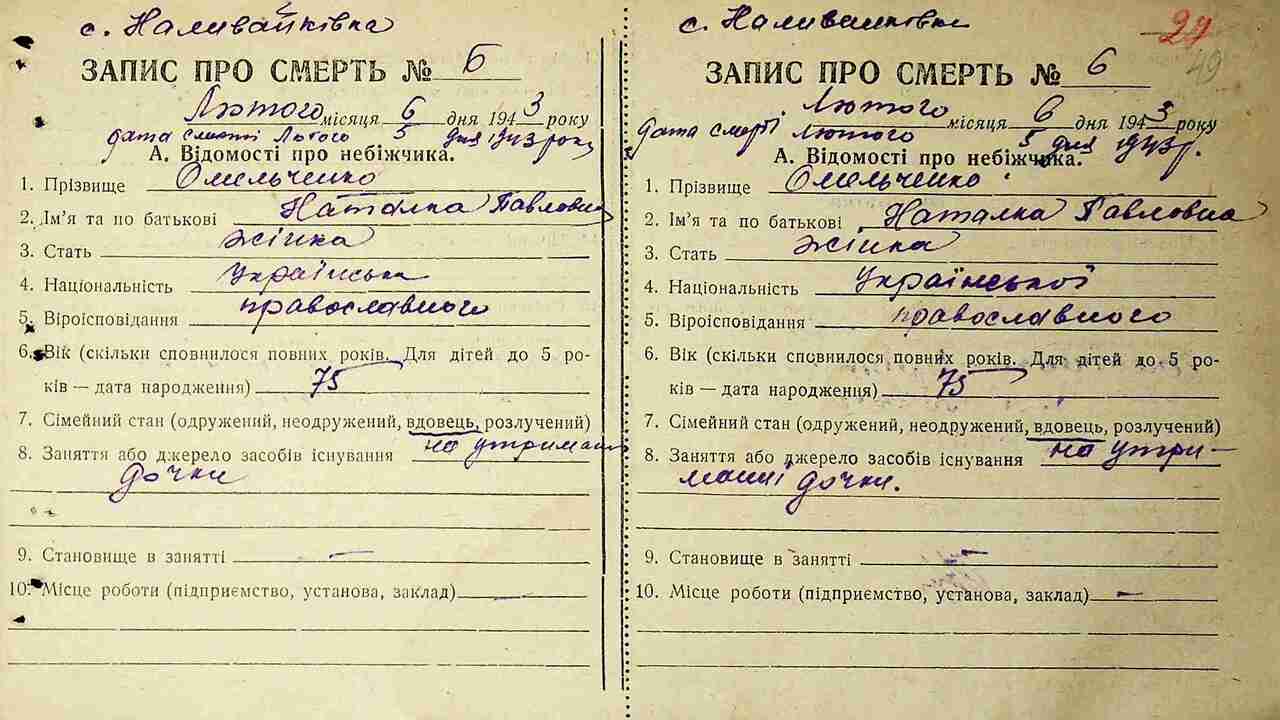 с. Наливайківка
ЗАПИС ПРО СМЕРТЬ № 6
Лютого місяця 6 дня 1943 року
дата смерті Лютого 5 дня 1943 року
А. Відомості про небіжчика.
1. Прізвище Омельченко
2. Ім'я та по батькові Наталка Павловна
3. Стать жінка
4. Національність Українська
5. Віроісповідання православного
6. Вік (скільки сповнилося повних років. Для дітей до 5 ро-
ків — дата народження) 75
7. Сімейний стан (одружений, неодружений, вдовець, розлучений)
8. Заняття або джерело засобів існування на утриманн
дочки
9. Становище в занятті —
10. Місце роботи (підприємство, установа, заклад) —
29
49
с. Наливайківка
ЗАПИС ПРО СМЕРТЬ № 6
Лютого місяця 6 дня 1943 року
дата смерті лютого 5 дня 1943 р.
А. Відомості про небіжчика.
1. Прізвище Омельченко
2. Ім'я та по батькові Наталка Павловна
3. Стать жінка
4. Національність Української
5. Віроісповідання православного
6. Вік (скільки сповнилося повних років. Для дітей до 5 ро-
ків — дата народження) 75
7. Сімейний стан (одружений, неодружений, вдовець, розлучений)
8. Заняття або джерело засобів існування на утри-
манні дочки.
9. Становище в занятті —
10. Місце роботи (підприємство, установа, заклад) —